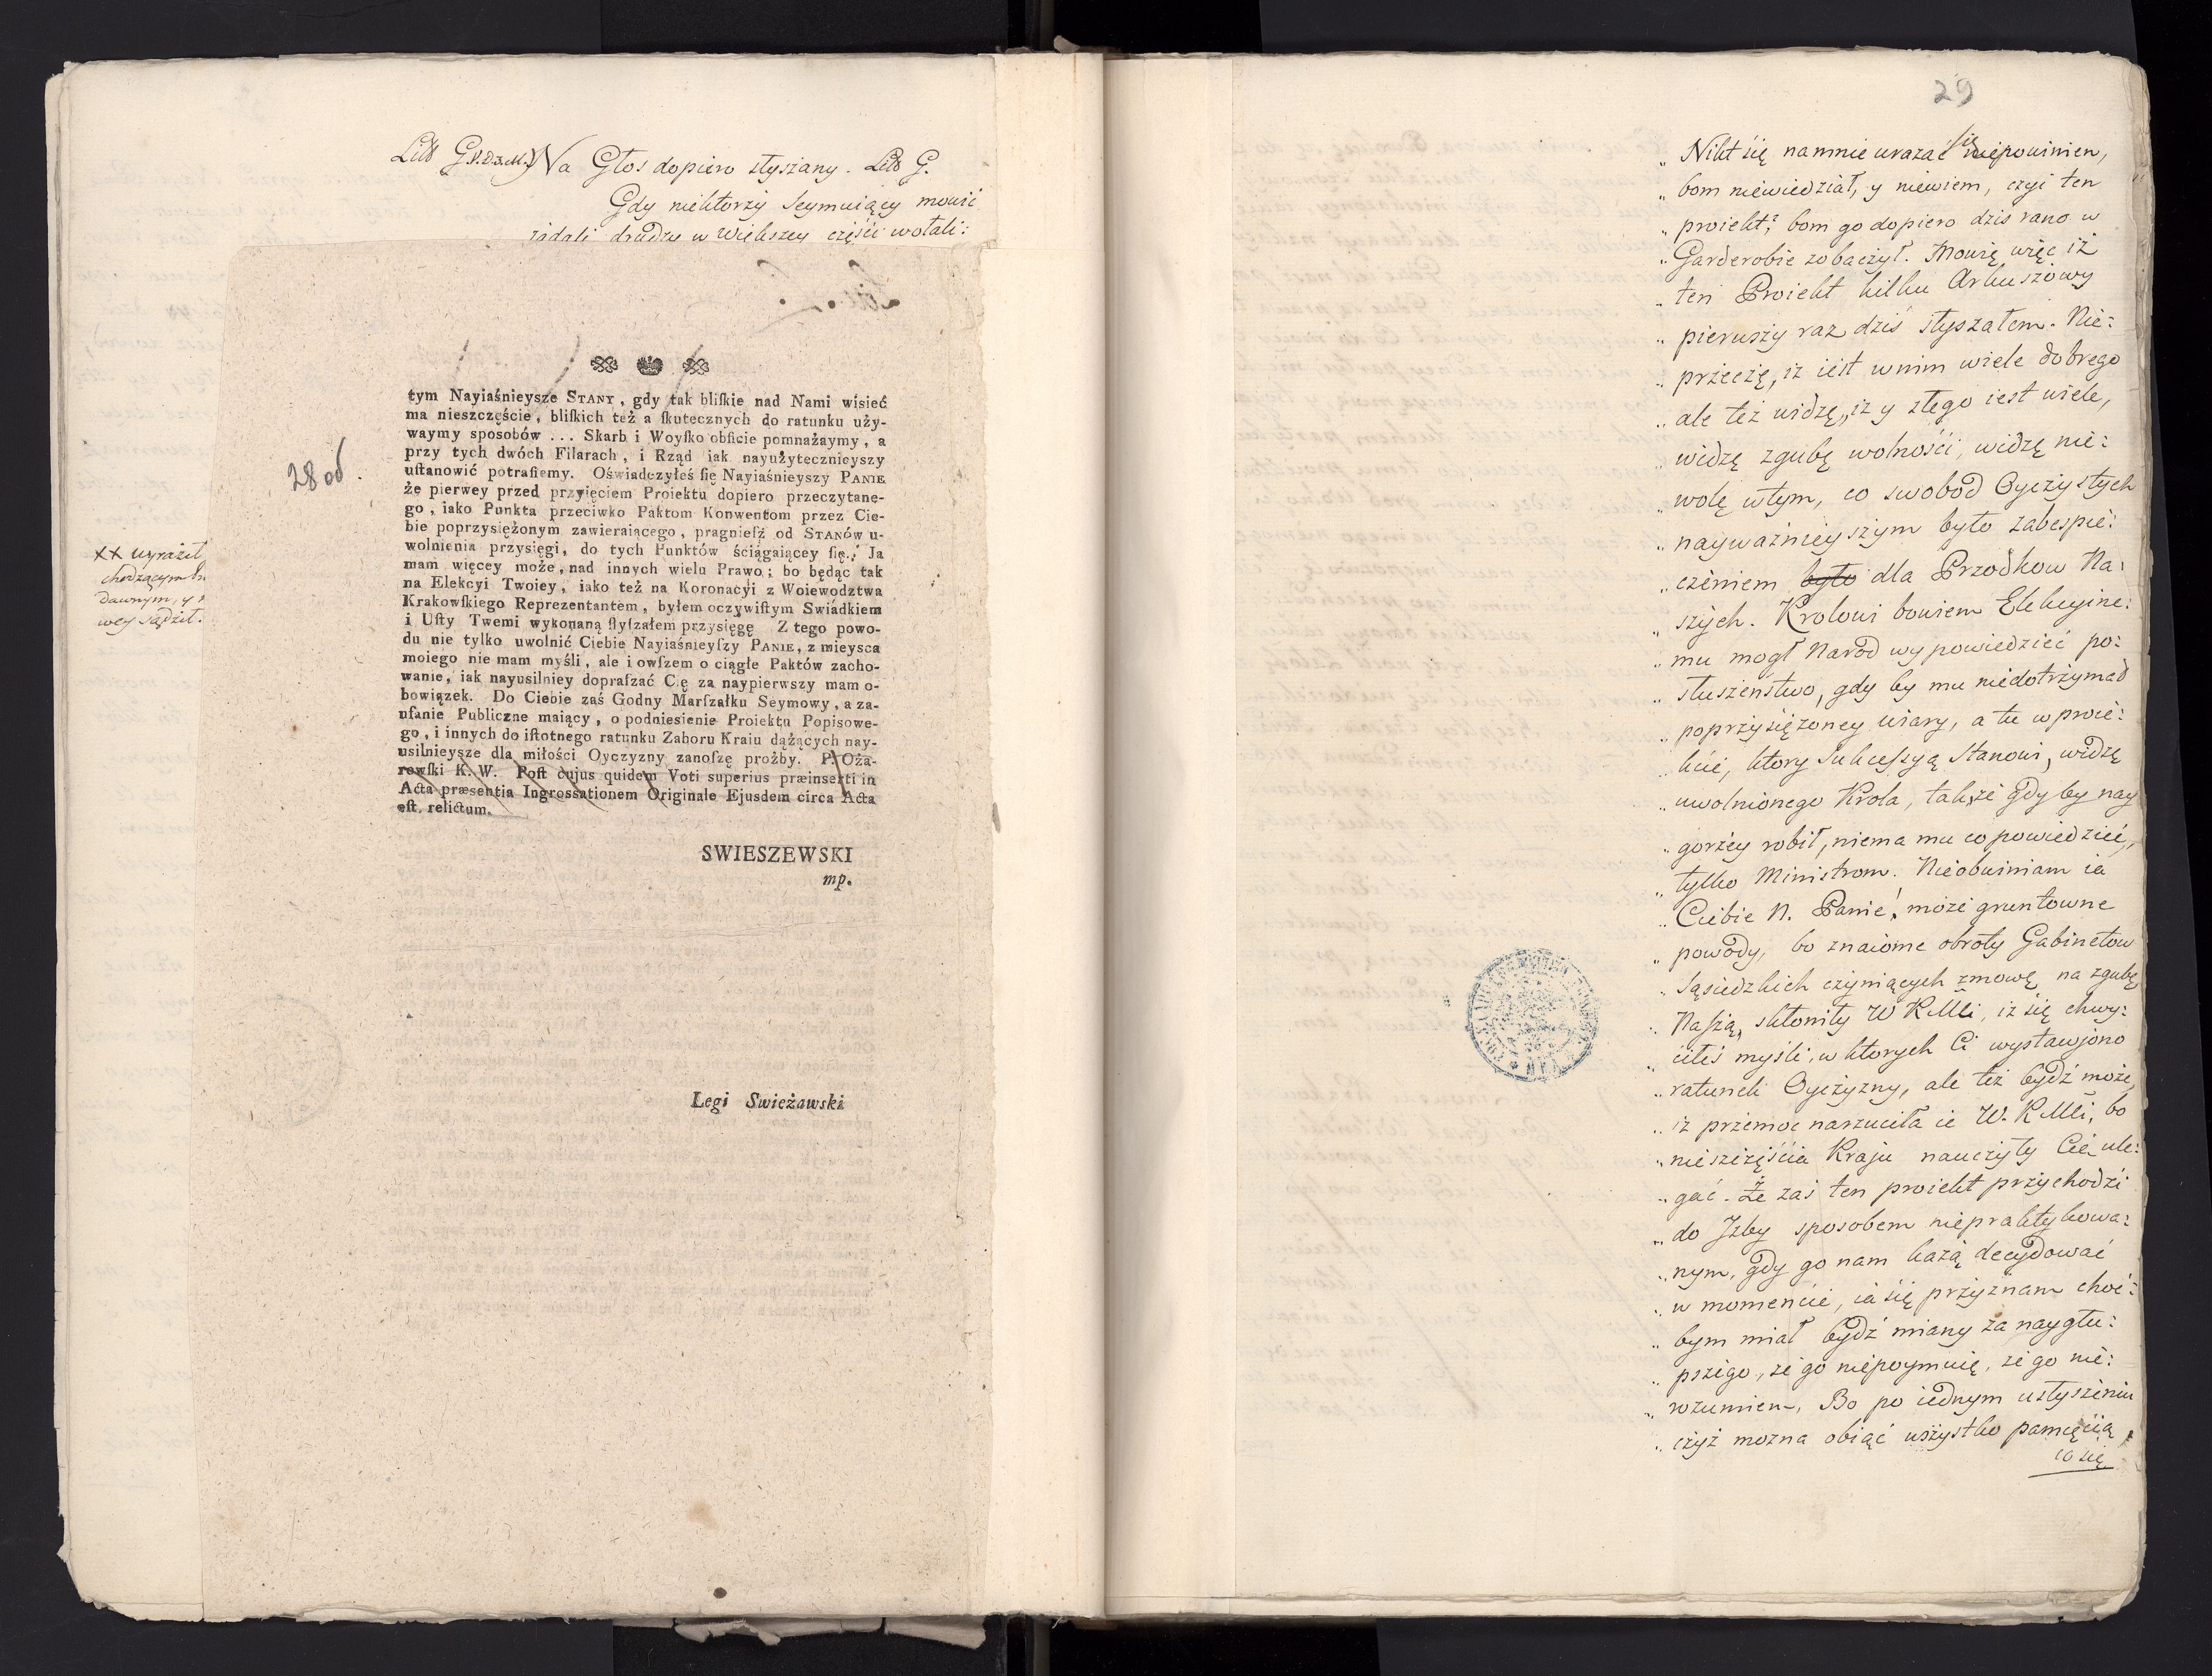 Litt G. V. Dz. M.) Na Głos dopiero słyszany. Litt G.
Gdy niektorzy Seymuiący mowić
żądali drudzy w Większey części wołali:
28 od.
XX wyraził
chodzącym
dawnym, y
wey sądził.
tym Nayiaśnieysze STANY, gdy tak bliſkie nad Nami wisieć
ma nieszczęście, bliſkich też a ſkutecznych do ratunku uży-
waymy sposobów ... Skarb i Woyſko obficie pomnażaymy, a
przy tych dwóch Filarach, i Rząd iak nayużytecznieyszy
uſtanowić potrafiemy. Oświadczyłeś ſię Nayiaśnieyszy PANIE
że pierwey przed przyięciem Proiektu dopiero przeczytane-
go, iako Punkta przeciwko Paktom Konwentom przez Cie-
bie poprzysiężonym zawieraiącego, pragnieſz od STANÓW u-
wolnienia przysięgi, do tych Punktów ściągaiącey ſię. Ja
mam więcey może, nad innych wielu Prawo; bo będąc tak
na Elekcyi Twoiey, iako też na Koronacyi z Woiewodztwa
Krakowſkiego Reprezentantem, byłem oczywiſtym Swiadkiem
i Uſty Twemi wykonaną ſłyſzałem przysięgę Z tego powo-
du nie tylko uwolnić Ciebie Nayiaśnieyſzy PANIE, z mieysca
moiego nie mam myśli, ale i owſzem o ciągłe Paktów zacho-
wanie, iak nayusilniey dopraſzać Cię za naypierwszy mam o-
bowiązek. Do Ciebie zaś Godny Marſzałku Seymowy, a za-
ufanie Publiczne maiący, o podniesienie Proiektu Popisowe-
go, i innych do iſtotnego ratunku Zaboru Kraiu dążących nay-
usilnieysze dla miłości Oyczyzny zanoſzę proźby. P. Oża-
rowſki K. W. Poſt cujus quidem Voti superius præinserti in
Acta præsentia Ingrossationem Originale Ejusdem circa Acta
eſt. relictum.
SWIESZEWSKI
mp.
Legi Swieżawski
29
„ Nikt się namnie urazać się niepowinien,
„ bom niewiedział, y niewiem, czyi ten
„ proiekt? bom go dopiero dzis rano w
„ Garderobie zobaczył. Mowię więc iż
„ ten Proiekt kilku Arkuszowy
„ pierwszy raz dziś słyszałem. Nie:
„ przeczę, iz iest wnim wiele dobrego
„ ale też widzę, iz y złego iest wiele,
„ widzę zgubę wolności, widzę nie:
„ wolę wtym, co swobod Oyczystych
„ nayważnieyszym było zabespie:
„ czeniem było dla Przodkow Na:
„ szych. Krolowi bowiem Elekcyine:
„ mu mogł Narod wypowiedzieć po:
„ słuszeństwo, gdy by mu niedotrzymał
„ poprzysiężoney wiary, a tu w proie:
„ kcie, ktory Sukceſsyą Stanowi, widzę
„ uwolnionego Krola, tak że gdy by nay
„ gorzey robił, niema mu co powiedzieć,
„ tylko Ministrom. Nieobwiniam ia
„ Ciebie N. Panie! może gruntowne
„ powody, bo znaiome obroty Gabinetow
„ Sąsiedzkich czyniących zmowę na zgubę
„ Naſzą, skłoniły W KMci, iż się chwy:
„ ciłeś myśli, w ktorych Ci wystawiono
„ ratunek Oyczyzny, ale też bydź może,
„ iż przemoc narzuciła ie W. KMci, bo
„ nieszczęścia Kraju nauczyły Cię ule:
„ gać. Że zaś ten proiekt przychodzi
„ do Jzby sposobem niepraktykowa:
„ nym, gdy go nam każą decydować
„ w momencie, ia się przyznam choć:
„ bym miał bydź miany za naygłu:
„ pszego, że go niepoymuię, że go nie:
„ rozumiem, Bo po iednym usłyszeniu
„ czyż mozna obiąć wszystko pamięcią,
co się